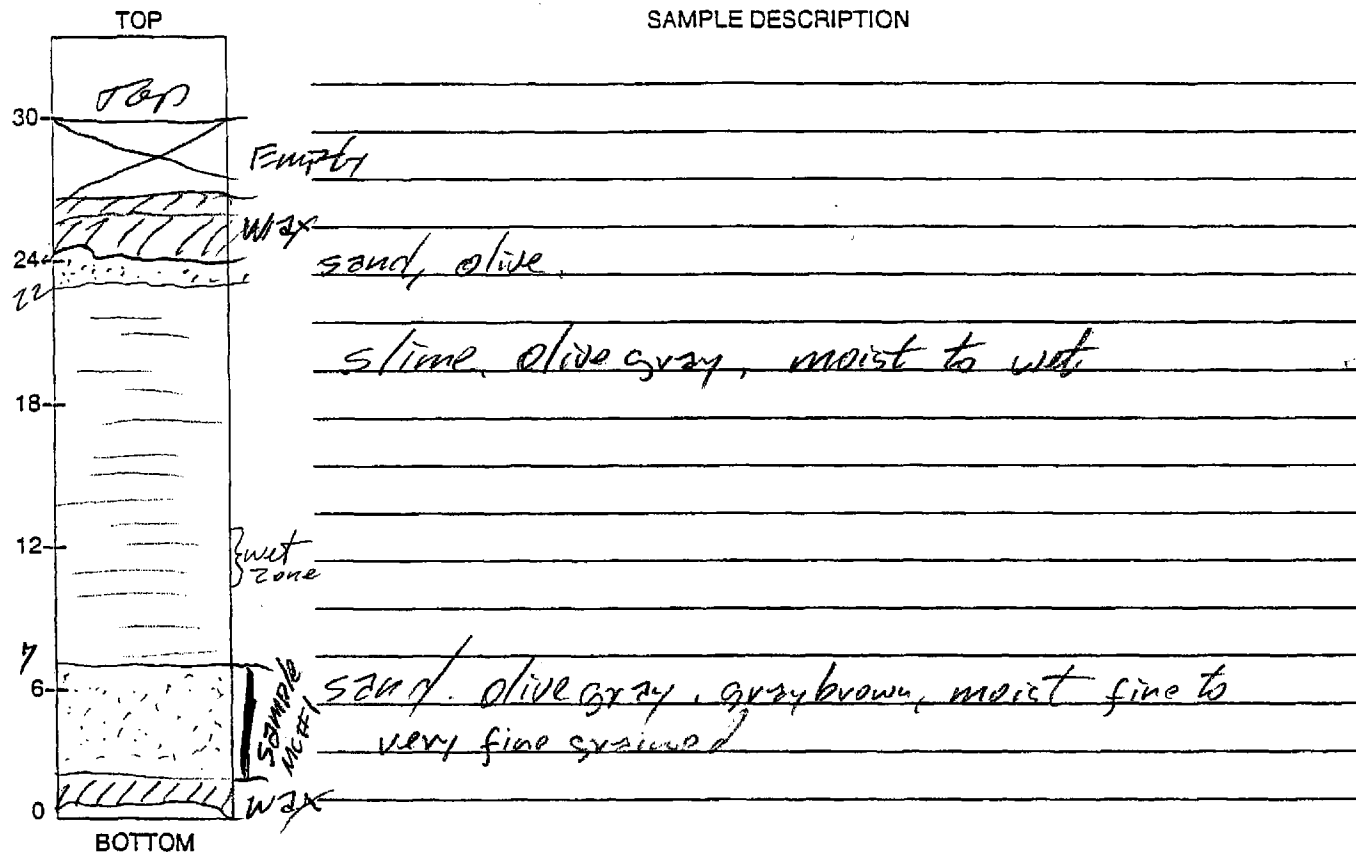 TOP
SAMPLE DESCRIPTION
Top
30
Empty
Wax
24
sand, olive.
22
slime, olive gray, moist to wet
18
12
wet
zone
7
6
sample
MC#1
sand. olive gray, gray brown, moist fine to
very fine grained
0
wax
BOTTOM